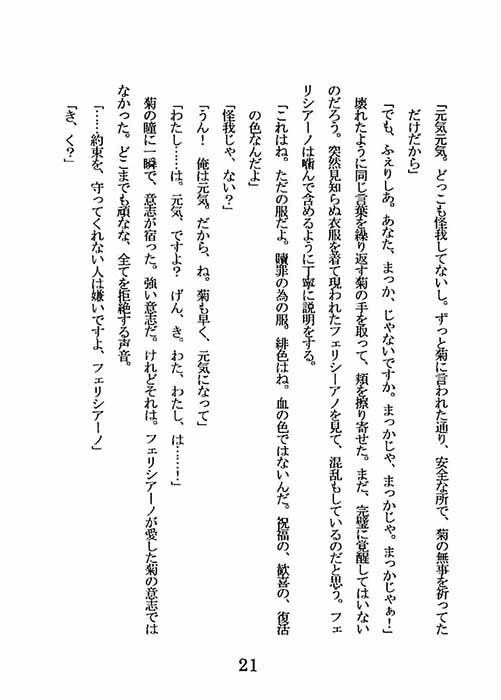 「元気元気。どっこも怪我してないし。ずっと菊に言われた通り、安全な所で、菊の無事を祈ってた
だけだから」
「でも、ふぇりしあ。あなた、まっか、じゃないですか。まっかじゃ、まっかじゃ。まっかじゃぁ！」
壊れたように同じ言葉を繰り返す菊の手を取って、頬を擦り寄せた。まだ、完璧に覚醒してはいない
のだろう。突然見知らぬ衣服を着て現われたフェリシアーノを見て、混乱もしているのだと思う。フェ
リシアーノは噛んで含めるように丁寧に説明をする。
「これはね。ただの服だよ。贖罪の為の服。緋色はね。血の色ではないんだ。祝福の、歓喜の、復活
の色なんだよ」
「怪我じゃ、ない？」
「うん！　俺は元気。だから、ね。菊も早く、元気になって」
「わたし……は。元気、ですよ？　げん、き。わた、わたし、は……！」
菊の瞳に一瞬で、意志が宿った。強い意志だ。けれどそれは。フェリシアーノが愛した菊の意志では
なかった。どこまでも頑なな、全てを拒絶する声音。
「……約束を、守ってくれない人は嫌いですよ、フェリシアーノ」
「き、く？」
21